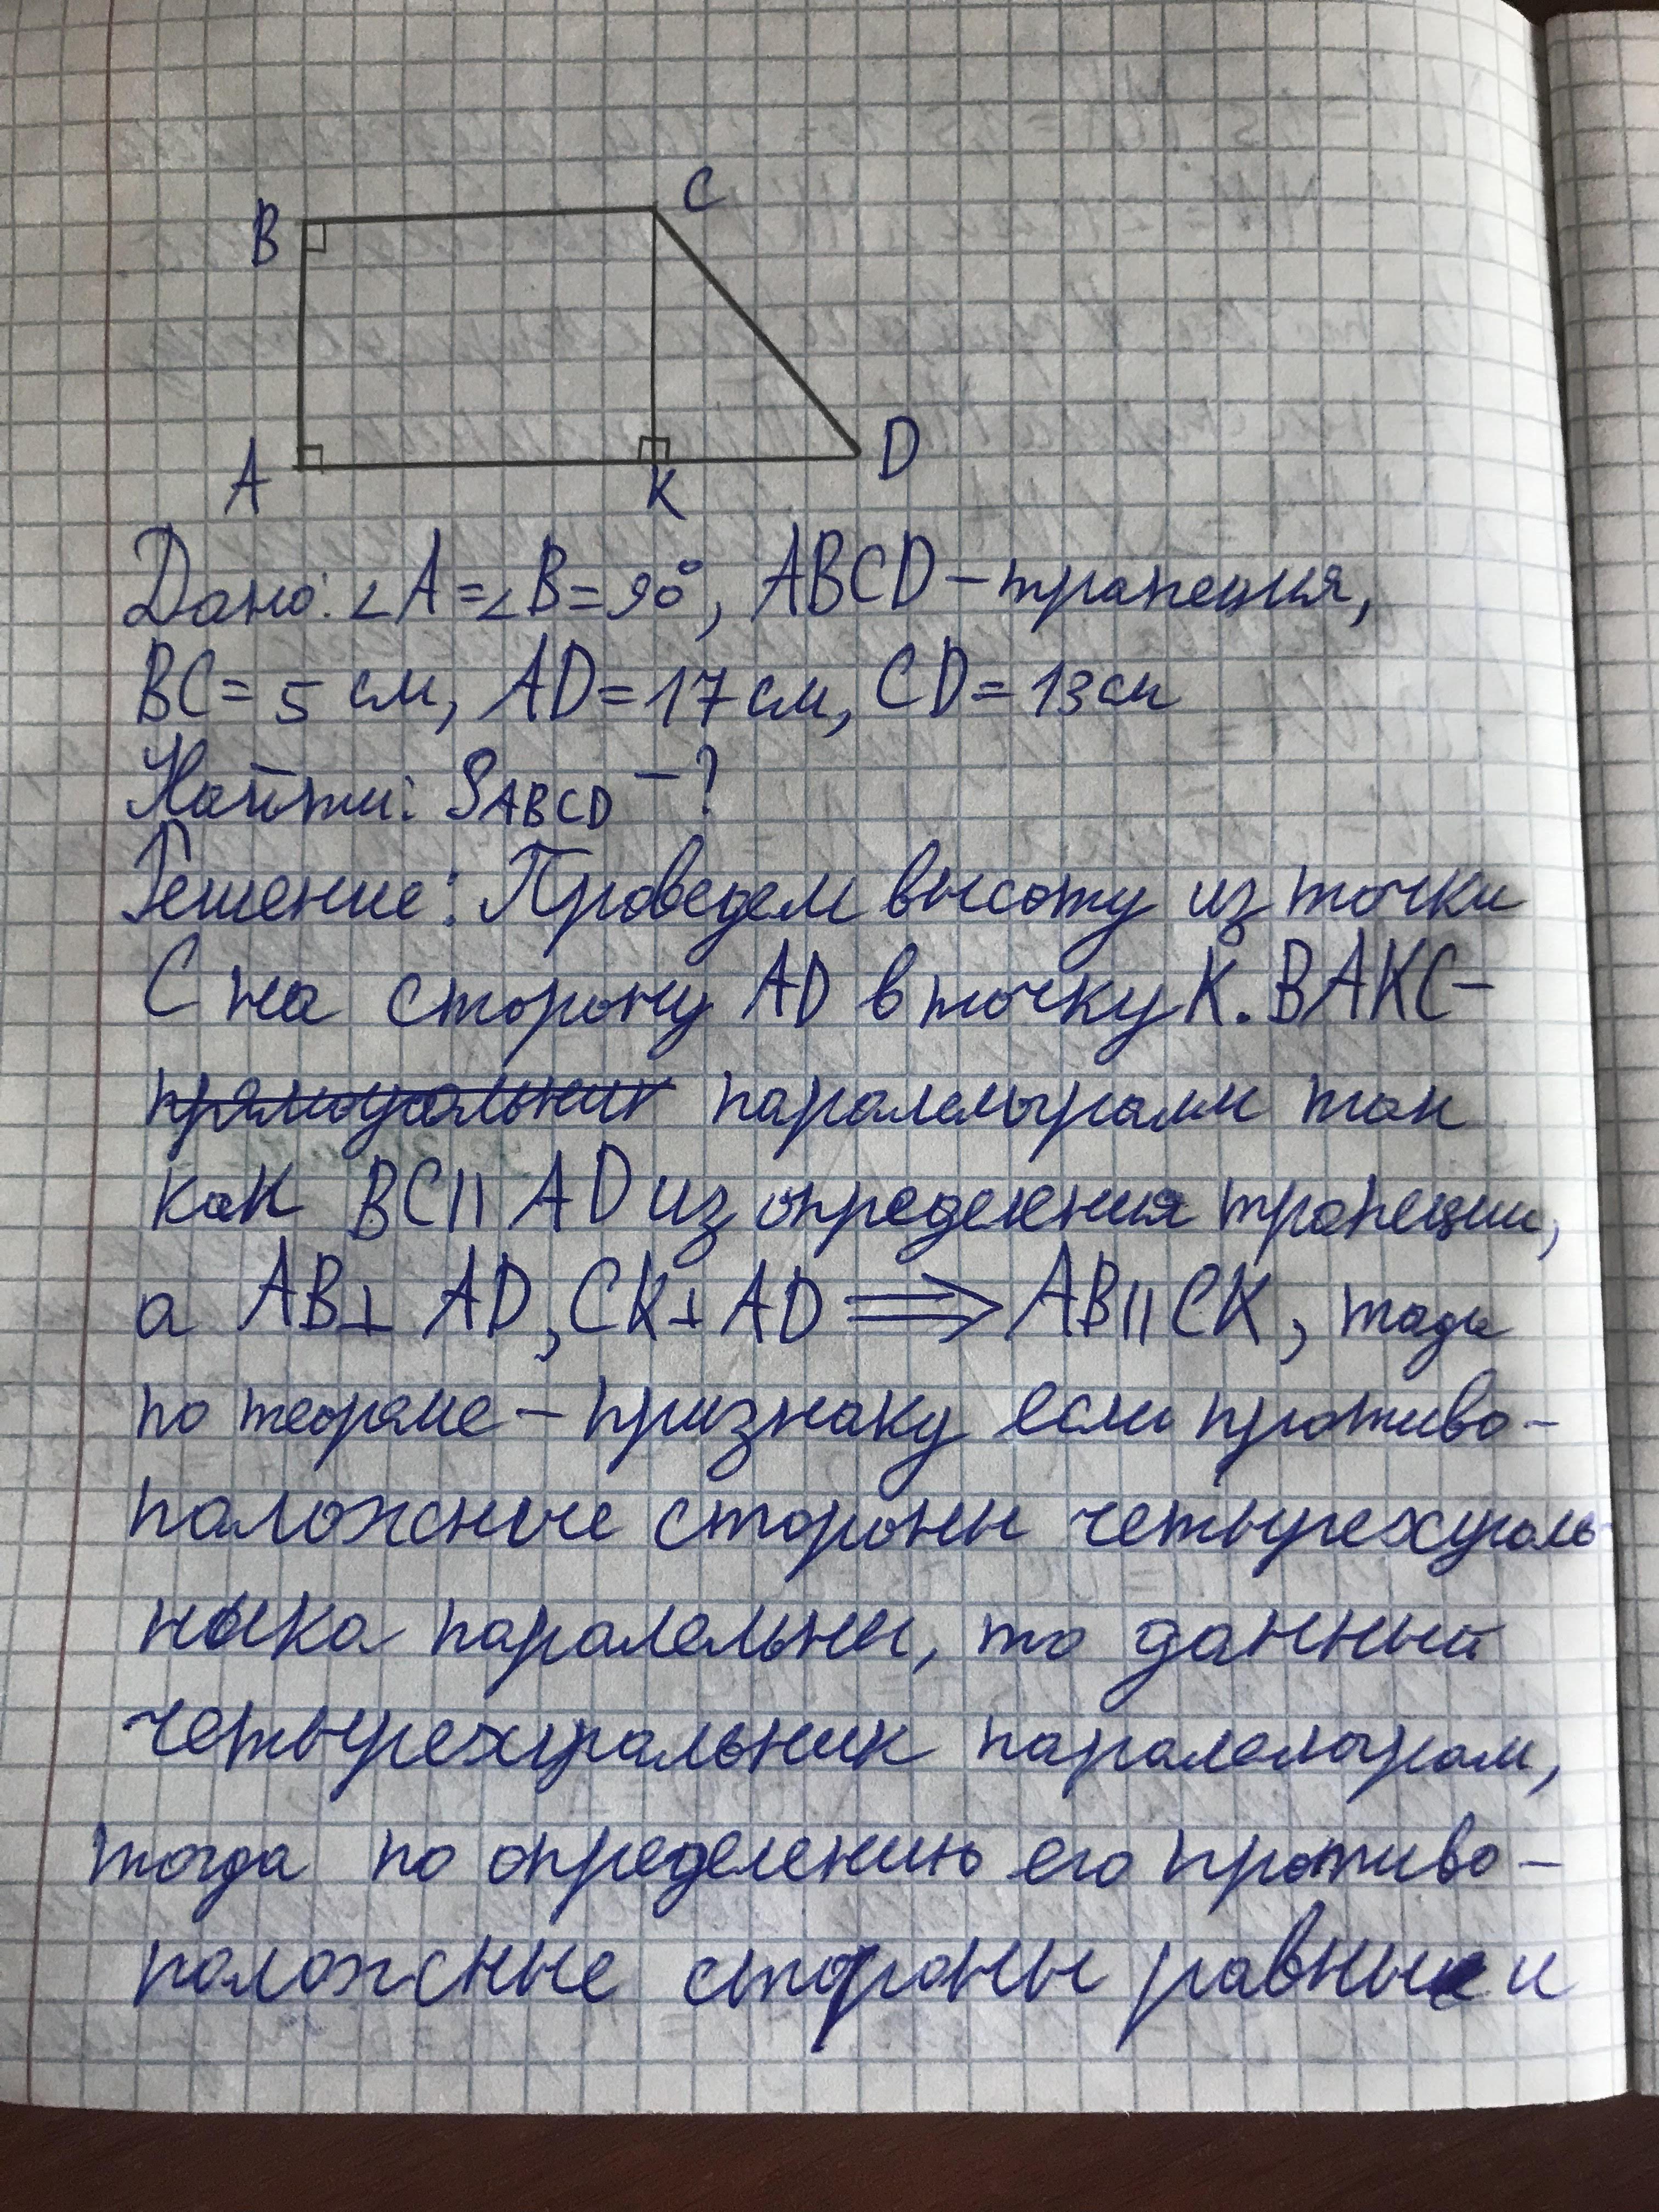 B
C
A
K
D
Дано: ∠A=∠B=90°, ABCD – трапеция,
BC= 5 см, AD=17 см, CD=13см
Найти: SABCD – ?
Решение: Проведем высоту из точки
С на сторону AD в точку K. BAKC –
прямоугольник паралелыграмм так
как BC || AD из определения трапеции,
а AB⊥ AD, CK⊥AD ⟹ AB || CK, тогда
по теореме – признаку если противо-
положные стороны четырехуголь
ника паралельны, то данный
четырехугральник паралелограм,
тогда по определению его противо-
положные стороны равны и